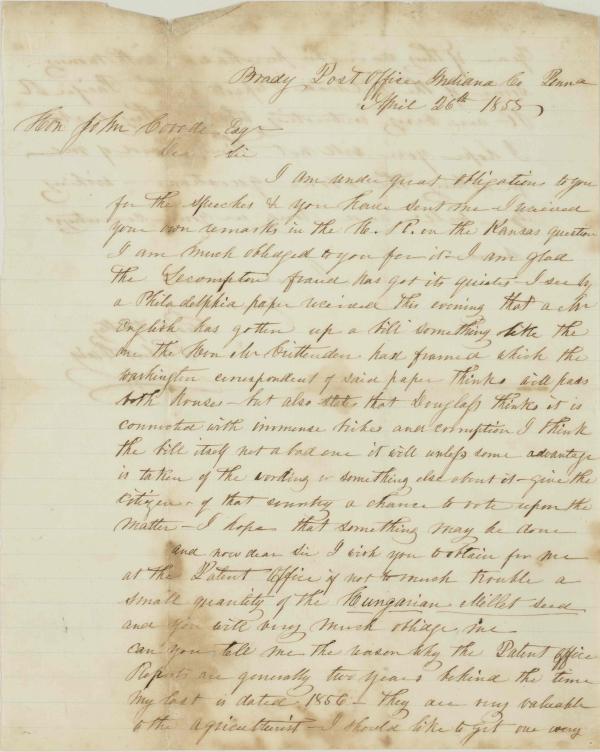 Brady Post Office Indiana Co Penna
April 26th 1858
Hon John Covode Esqr
Dear Sir
I am under great obligations to you
for the speeches & you have sent me I received
your own remarks in the H. R. on the Kansas question
I am much obliged to you for it - I am glad
the Lecompton fraud has got its quietus - I see by
a Philadelphia paper received this evening that a Mr
English has gotten up a bill something like the
one the Hon Mr Crittenden had framed which the
washington correspondent of said paper thinks will pass
both houses - but also states that Douglass thinks it is
connected with immense bribes and corruption I think
the bill itself not a bad one it will unless some advantage
is taken of the wording or something else about it - give the
Citizens of that country a chance to vote upon the
matter - I hope that something may be done
and now dear Sir I wish you to obtain for me
at the Patent Office if not to much trouble a
small quantity of the Hungarian Millet seed
and you will very much oblidge me
can you tell me the reason why the Patent Office
Reports are generally two years behind the time
my last is dated 1856 - they are very valuable
to the agriculturist - I should like to get one every